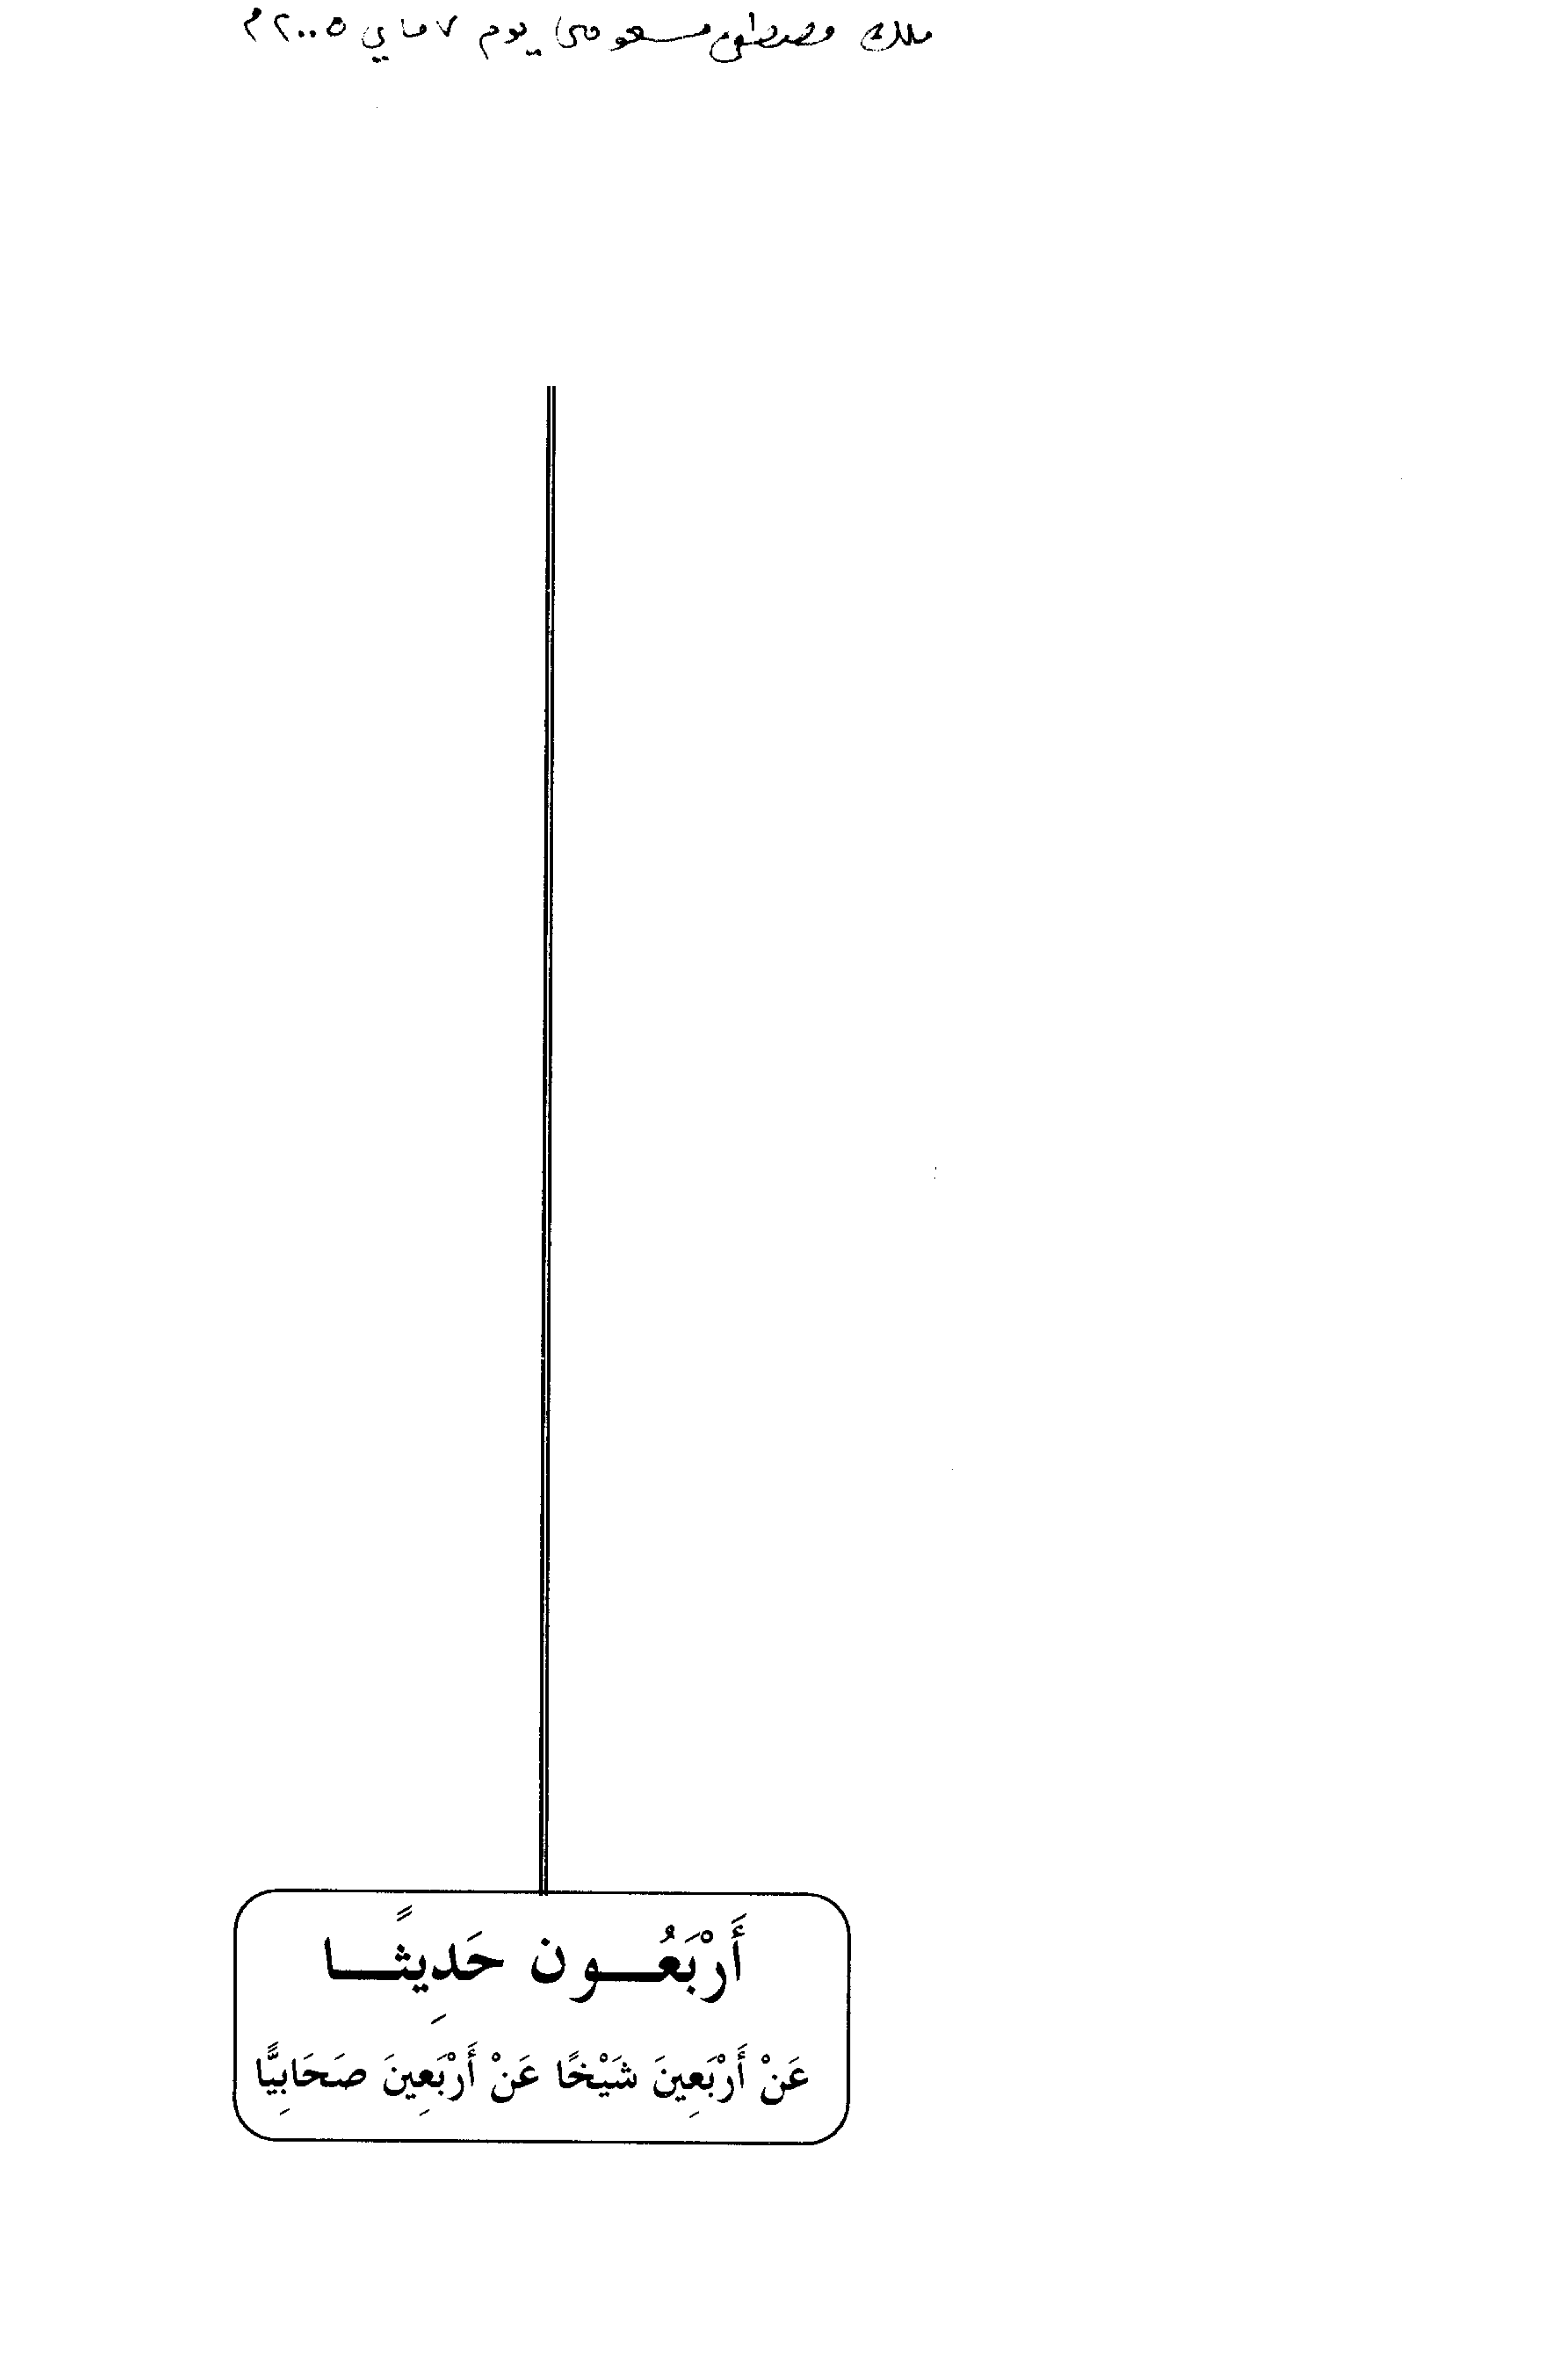 ملك مصطفى مسعودي يوم ٧ ماي ٢٠٠٥م
أَرْبَعُـــون حَدِيثًـــا
عَنْ أَرْبَعِينَ شَيْخًا عَنْ أَرْبَعِينَ صَحَابِيًّا